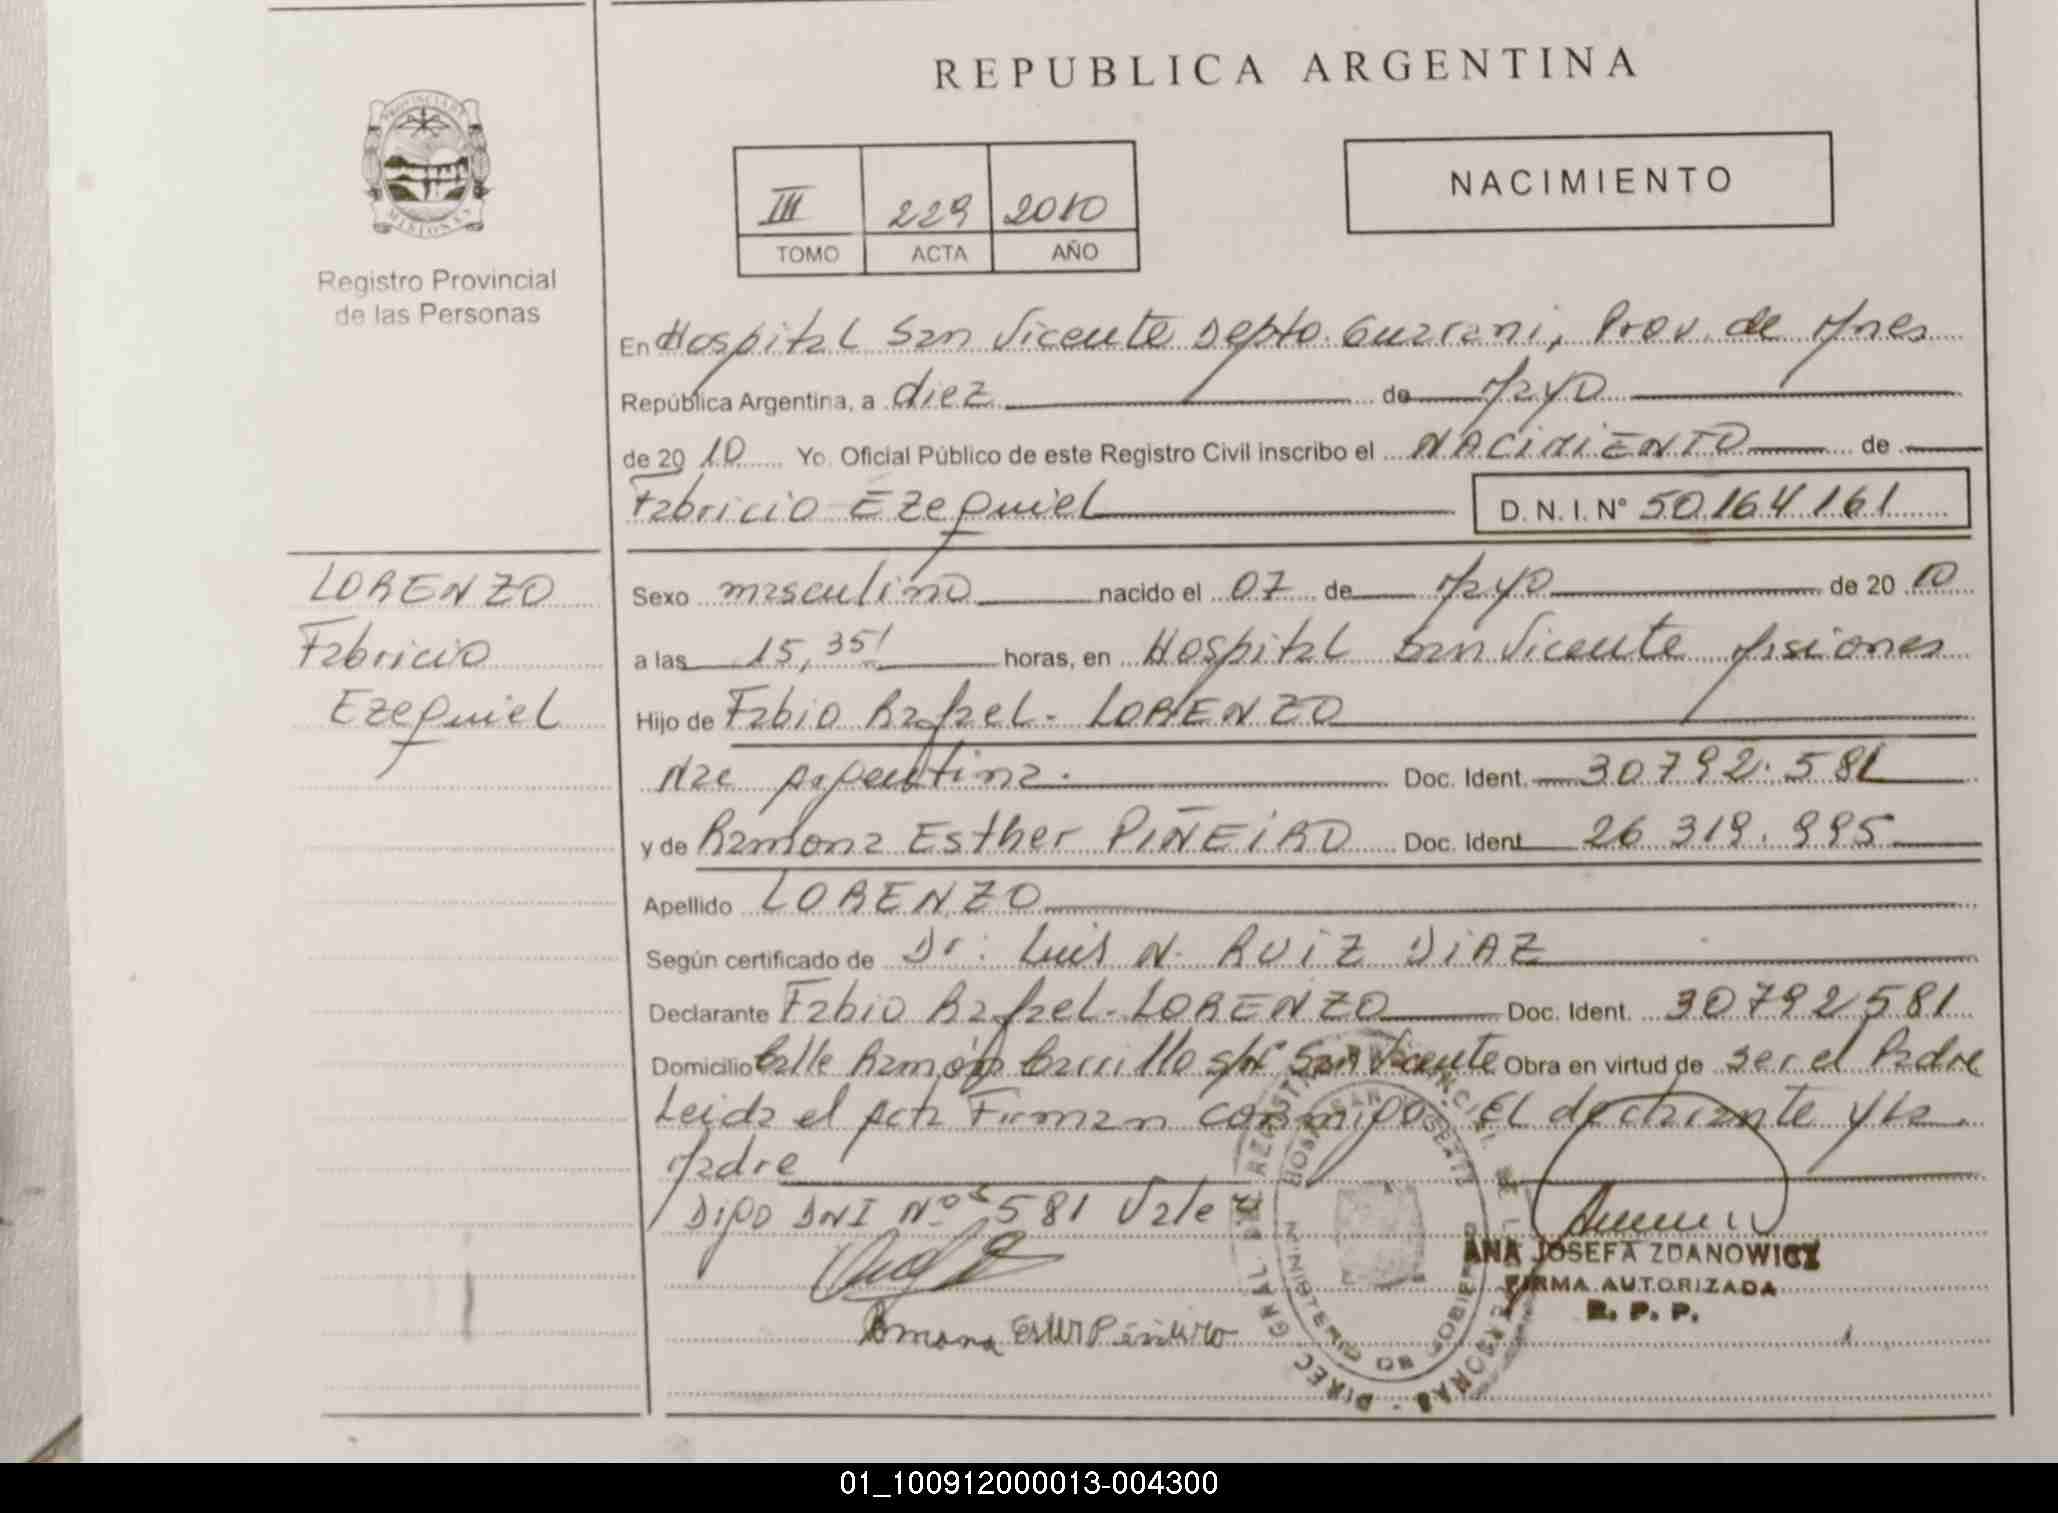 REPUBLICA ARGENTINA
PROVINCIA DE
MISIONES
Registro Provincial
de las Personas
III 229 2010
TOMO ACTA AÑO
NACIMIENTO
En Hospital San Vicente Depto. Guarani, Prov. de Mnes
República Argentina, a diez de Mayo
de 20 10 Yo, Oficial Público de este Registro Civil inscribo el NACIMIENTO de
Fabricio Ezequiel D.N.I. N° 50164161
LORENZO
Fabricio
Ezequiel
Sexo masculino nacido el 07 de Mayo de 20 10
a las 15,35' horas, en Hospital San Vicente Misiones
Hijo de Fabio Rafael - LORENZO
Nac Argentina. Doc. Ident. 30792.581
y de Ramona Esther PIÑEIRO Doc. Ident 26 319.995
Apellido LORENZO
Según certificado de Dr: Luis N. RUIZ DIAZ
Declarante Fabio Rafael - LORENZO Doc. Ident. 30792581
Domicilio Calle Ramón Carrillo s/N San Vicente Obra en virtud de ser el Padre
Leida el Acta Firman conmigo. El declarante y La
Madre
Digo DNI Nº 581 Vale
Ramona
ANA JOSEFA ZDANOWICZ
FIRMA AUTORIZADA
R. P. P.
MINISTERIO DE GOBIERNO
01_100912000013-004300